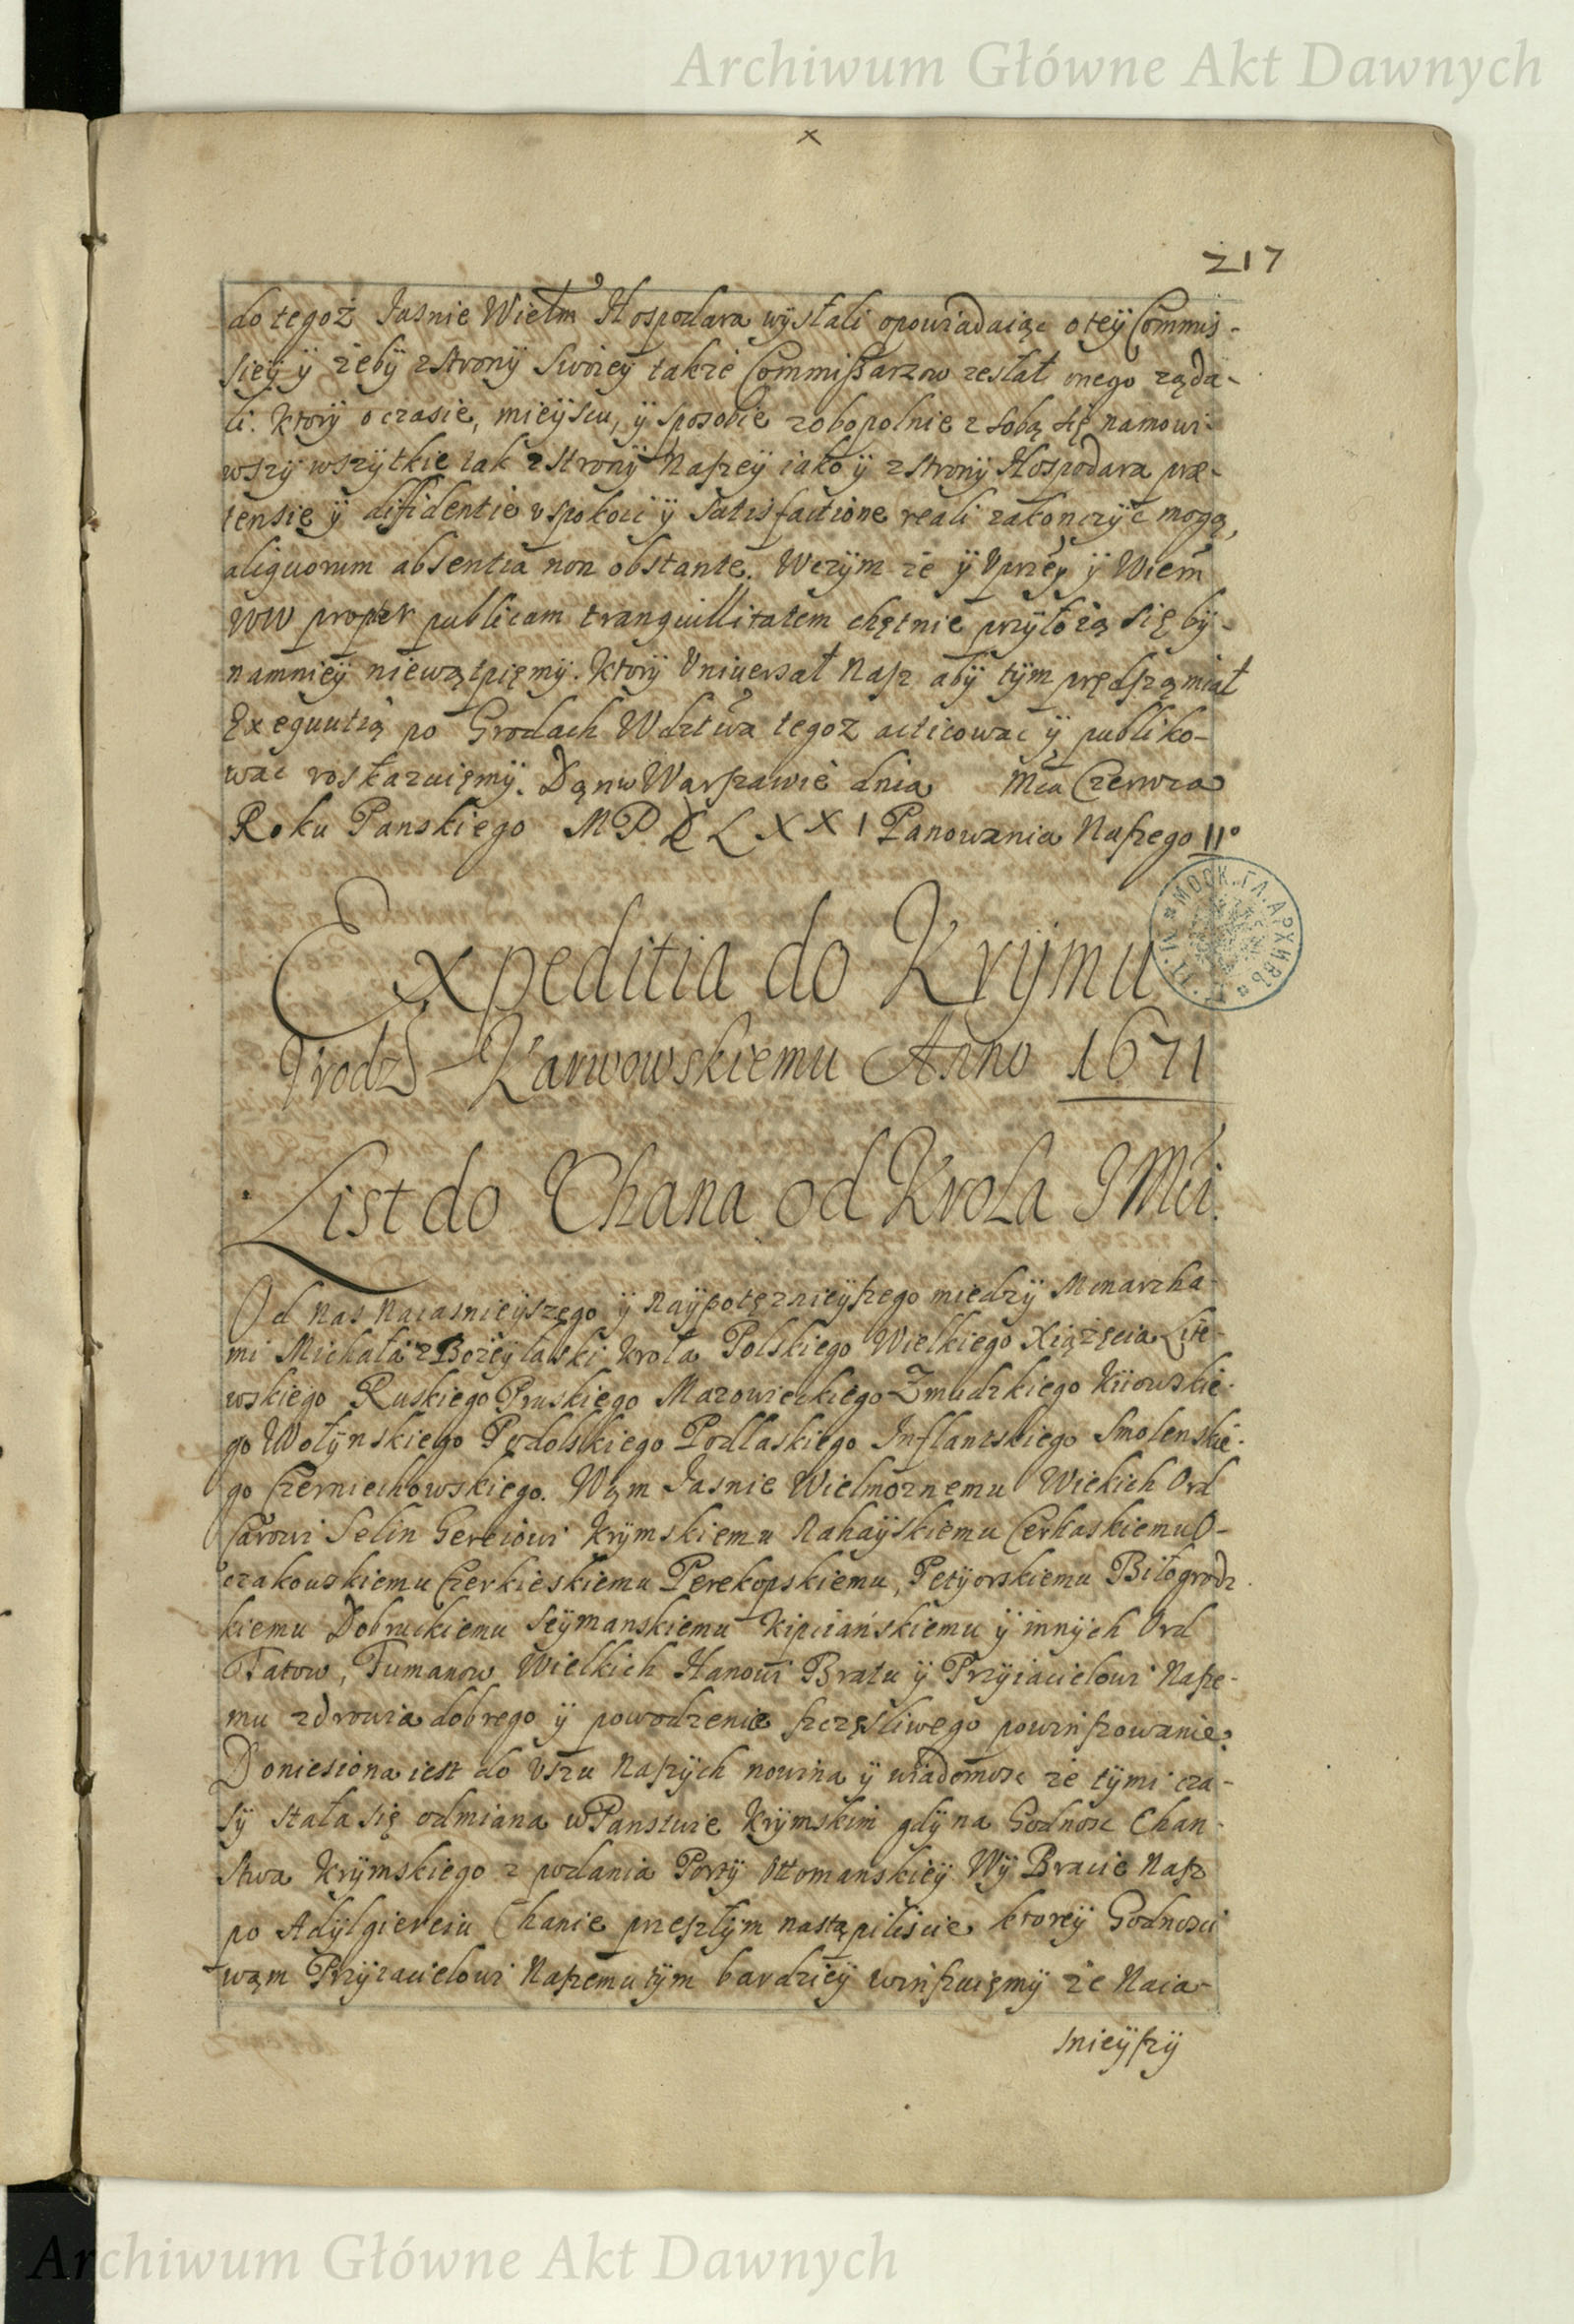 Archiwum Główne Akt Dawnych
×
217
do tegoż Jasnie Wielm Hospodara wysłali opowiadaiąc o tey Commis-
sieÿ ÿ zebÿ z stronÿ Swoieÿ takze Commissarzow zesłał onego ząda-
li. Ktorÿ o czasie, mieÿscu, ÿ sposobie zobopolnie z sobą się namowi-
wszÿ wszÿtkie tak z stronÿ Naszeÿ iako ÿ z stronÿ Hospodara præ-
tensie ÿ diffidentie uspokoić ÿ Satisfactione reali zakonczÿc mogą,
aliquorum absentia non obstante. Wczÿm ze ÿ Uprzeÿ ÿ Wiern
WW propter publicam tranquillitatem chętnie przÿłozą się bÿ-
namnieÿ niewątpięmÿ. Ktorÿ Uniwersał Nasz abÿ tÿm prędszą miał
Exequutią po Grodach Wdztwa tegoz acticowac ÿ publiko-
wac roskazuięmÿ. Dąn w Warszawie dnia Mca Czerwca
Roku Panskiego MDCLXXI Panowania Naszego II°
Expeditia do Krÿmu
Urodz Karwowskiemu Anno 1671
List do Chana od Krola JMci.
Od Nas Naiasnieÿszego ÿ Naÿpotęznieÿszego miedzÿ Monarcha-
mi Michała z Bozeÿ łaski Krola Polskiego Wielkiego Xiążęcia Lite-
wskiego Ruskiego Pruskiego Mazowieckiego Zmudzkiego Kiiowskie-
go Wołÿnskiego Podolskiego Podlaskiego Inflantskiego Smolenskie-
go Czerniechowskiego. Wąm Jasnie Wielmoznemu Wielkich Ord
Carowi Selin Gereiowi Krÿmskiemu Nahaÿskiemu Cerkaskiemu O-
czakowskiemu Czerkieskiemu Perekopskiemu, Petÿorskiemu Biłogrodz-
kiemu Dobruckiemu Seÿmanskiemu Kipciańskiemu ÿ innÿch Ord
Tatow, Tumanow Wielkich Hanowi Bratu ÿ Przÿiacielowi Nasze-
mu zdrowia dobrego ÿ powodzenie szczęsliwego powinszowanie.
Doniesiona iest do Uszu Naszÿch nowina ÿ wiadomosc ze tÿmi cza-
sÿ stała się odmiana w Panstwie Krÿmskim gdÿ na Godnosc Chan-
stwa Krÿmskiego z podania Portÿ Ottomanskieÿ Wÿ Bracie Nasz
po Adÿlgiereiu Chanie przeszłÿm nastąpiliscie ktoreÿ Godnosci
wąm Przÿiacielowi Naszemu tÿm bardzieÿ winszuięmÿ ze Naia-
snieÿszÿ
Archiwum Główne Akt Dawnych